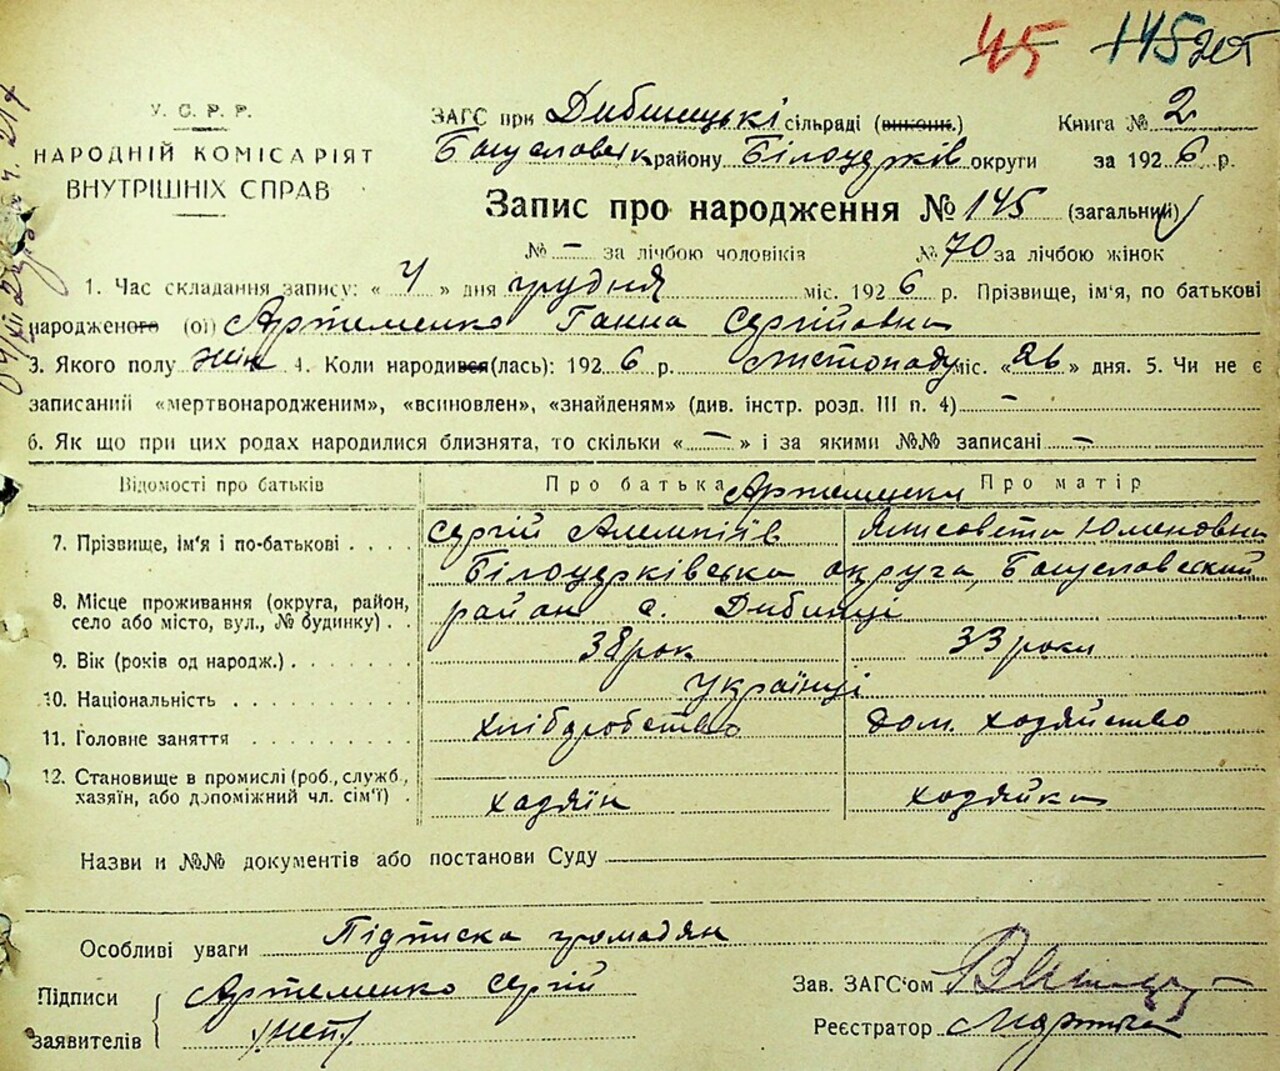 45 145
У. С. Р. Р.
НАРОДНІЙ КОМІСАРІЯТ
ВНУТРІШНІХ СПРАВ
ЗАГС при Дибинецькі сільраді (виконк.) Книга № 2
району Білоцерків округи за 1926 р.
Запис про народження № 145 (загальний)
№ – за лічбою чоловіків № 70 за лічбою жінок
1. Час складання запису: « 4 » дня грудня міс. 1926 р. Прізвище, ім'я, по батькові
народженого (ої) Артеменко Ганна Сергійовна
3. Якого полу жін 4. Коли народився(лась): 1926 р. листопаду міс. «26» дня. 5. Чи не є
записаний «мертвонародженим», «всиновлен», «знайденям» (див. інстр. розд. III п. 4) –
6. Як що при цих родах народилися близнята, то скільки « – » і за якими №№ записані –
Відомості про батьків Про батька Про матір
Артеменки
7. Прізвище, ім'я і по-батькові . . . . Сергій
Білоцерківська округа, Богуславский
8. Місце проживання (округа, район,
село або місто, вул., № будинку) . . район с. Дибинці
9. Вік (років од народж.) . . . . . . . 38 рок 33 роки
10. Національність . . . . . . . . . . українці
11. Головне заняття . . . . . . . . . хліборобство дом. хозяйство
12. Становище в промислі (роб., служб.,
хазяїн, або допоміжний чл. сім'ї) . хозяїн хозяйка
Назви и №№ документів або постанови Суду
Особливі уваги Підписка громадян
Підписи
заявителів
Артеменко Сергій
/неп/
Зав. ЗАГС'ом
Реєстратор